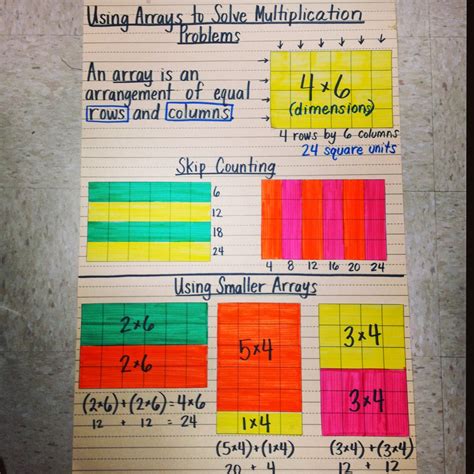 Using Arrays to Solve Multiplication
Problems
An array is an
arrangement of equal
rows and columns
4×6
(dimensions)
4 rows by 6 columns
24 square units
Skip Counting
6
12
18
24
4 8 12 16 20 24
Using Smaller Arrays
2×6
2×6
(2×6)+(2×6)=4×6
12 + 12 = 24
5×4
1×4
(5×4)+(1×4)
20 + 4
3×4
3×4
(3×4)+(3×4)
12 + 12